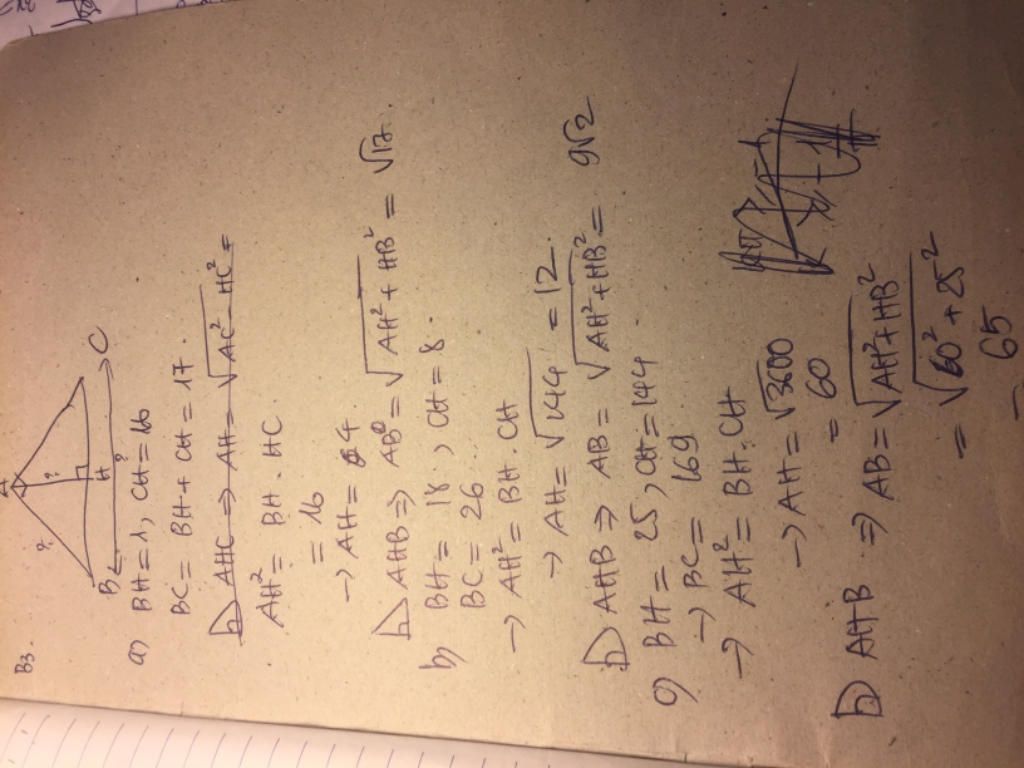 B3.
A
?
?
B
H
C
?
a) BH = 1, CH = 16
BC = BH + CH = 17.
AHC => AH = √AC² - HC² =
AH² = BH . HC
= 16
-> AH = 4
AHB => AB = √AH² + HB² = √17.
b) BH = 18, CH = 8.
BC = 26
-> AH² = BH . CH
-> AH = √144 = 12
AHB => AB = √AH² + HB² = 9√2
c) BH = 25, CH = 144.
-> BC = 169
-> AH² = BH . CH
-> AH = √3600
= 60
AHB => AB = √AH² + HB²
= √60² + 25²
= 65